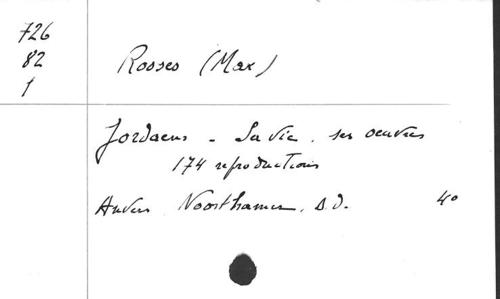 726
82
1
Rooses (Max)
Jordaens - Sa vie. ses oeuvres
174 reproductions
Anvers Noorthamer. S.D. 4º